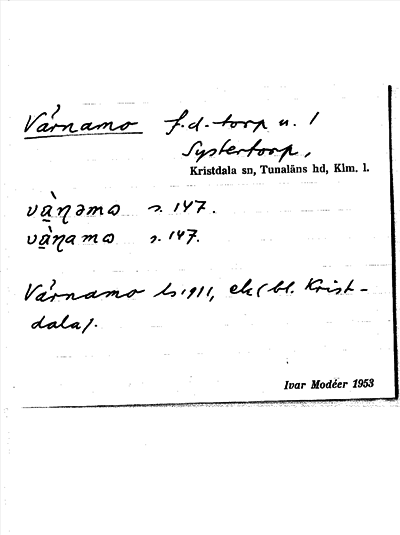 Värnamo f.d. torp u. 1
Systertorp,
Kristdala sn, Tunaläns hd, Klm. l.
s. 147.
s. 147.
Värnamo ls 1911, ek (bl. Krist-
dala).
Ivar Modéer 1953